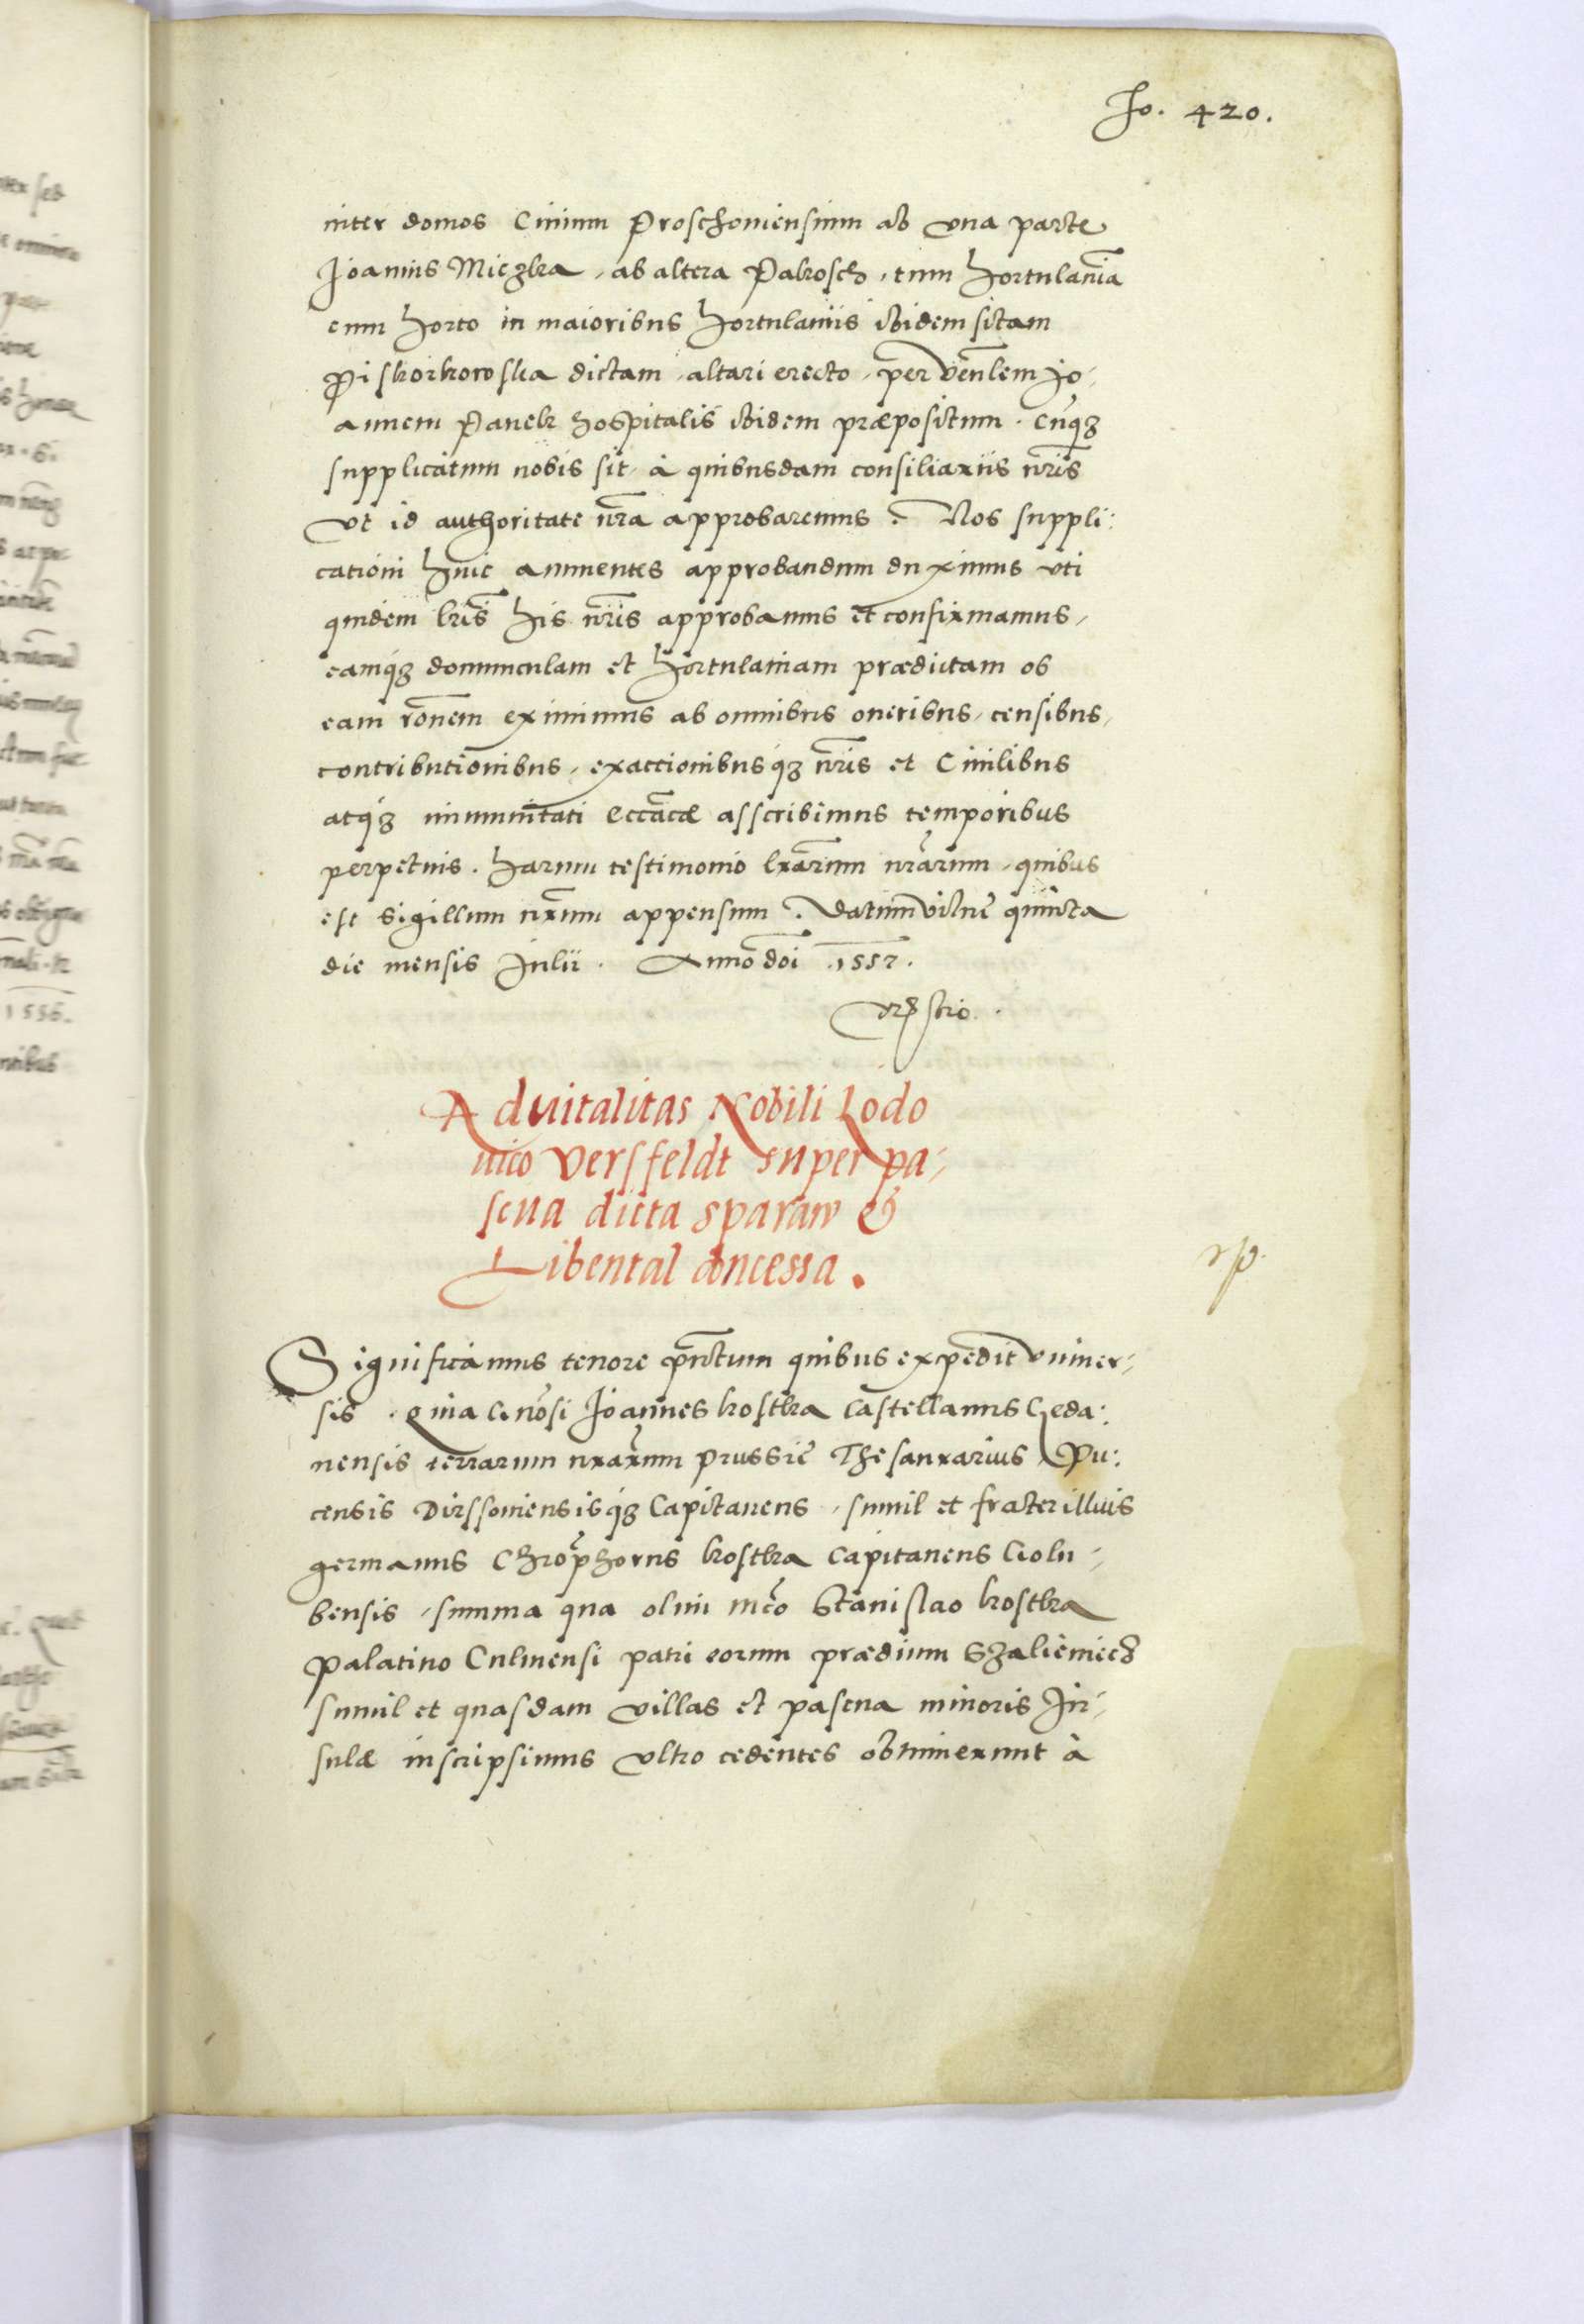 Fo. 420.
inter domos Ciuium Proschouiensium ab vna parte
Joannis Miczka, ab altera Pakosch, tum hortulaniã
cum horto in maioribus hortulaniis ibidem sitam
Piskorkowska dictam, altari erecto, per Veñlem Jo,
annem Panek hospitalis ibidem præpositum. Cũqʒ
supplicatum nobis sit, à quibusdam consiliariis nr̃is
vt id authoritate nr̃a approbaremus. Nos suppli:
cationi huic annuentes approbandum duximus vti
quidem lr̃is his nr̃is approbamus et confirmamus,
eamqʒ domunculam et hortulaniam prædictam ob
eam rõnem eximimus ab omnibus oneribus, censibus,
contributionibus, exactionibusqʒ nr̃is et Ciuilibus
atqʒ immunitati eccãcæ asscribimus temporibus
perpetuis. Harum testimonio lr̃arum nr̃arum, quibus
est sigillum nr̃um appensum. Datum Vilnę quinta
die mensis Julii. Anno doĩ 1557.
Advitalitas Nobili Lodo
uico Versfeldt super pa,
scua dicta Sparaw &
Libental concessa.
rp.
Significamus tenore pñtium quibus expedit vniuer,
sis. Quia Genõsi Joannes Kostka Castellanus Geda:
nensis terrarum nr̃arum Prussię Thesaurarius Pu:
censis Dirssouiensisqʒ Capitaneus, simul et frater illius
germanus Chrõphorus Kostka Capitaneus Golu,
bensis, summa qua olim mc̃o Stanislao Kostka
Palatino Culmensi patri eorum prædium Szalieniecz
simul et quasdam villas et pascua minoris In,
sulæ inscripsimus vltro cedentes obtinuerunt à